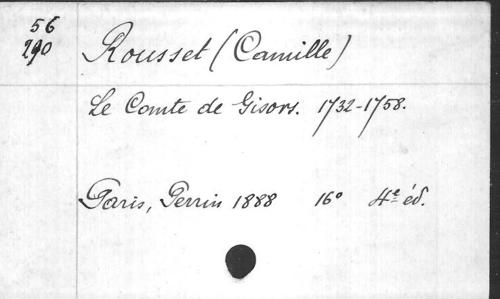 56
290
Rousset (Camille)
Le Comte de Gisors. 1732-1758.
Paris, Perrin 1888 16° 4e éd.